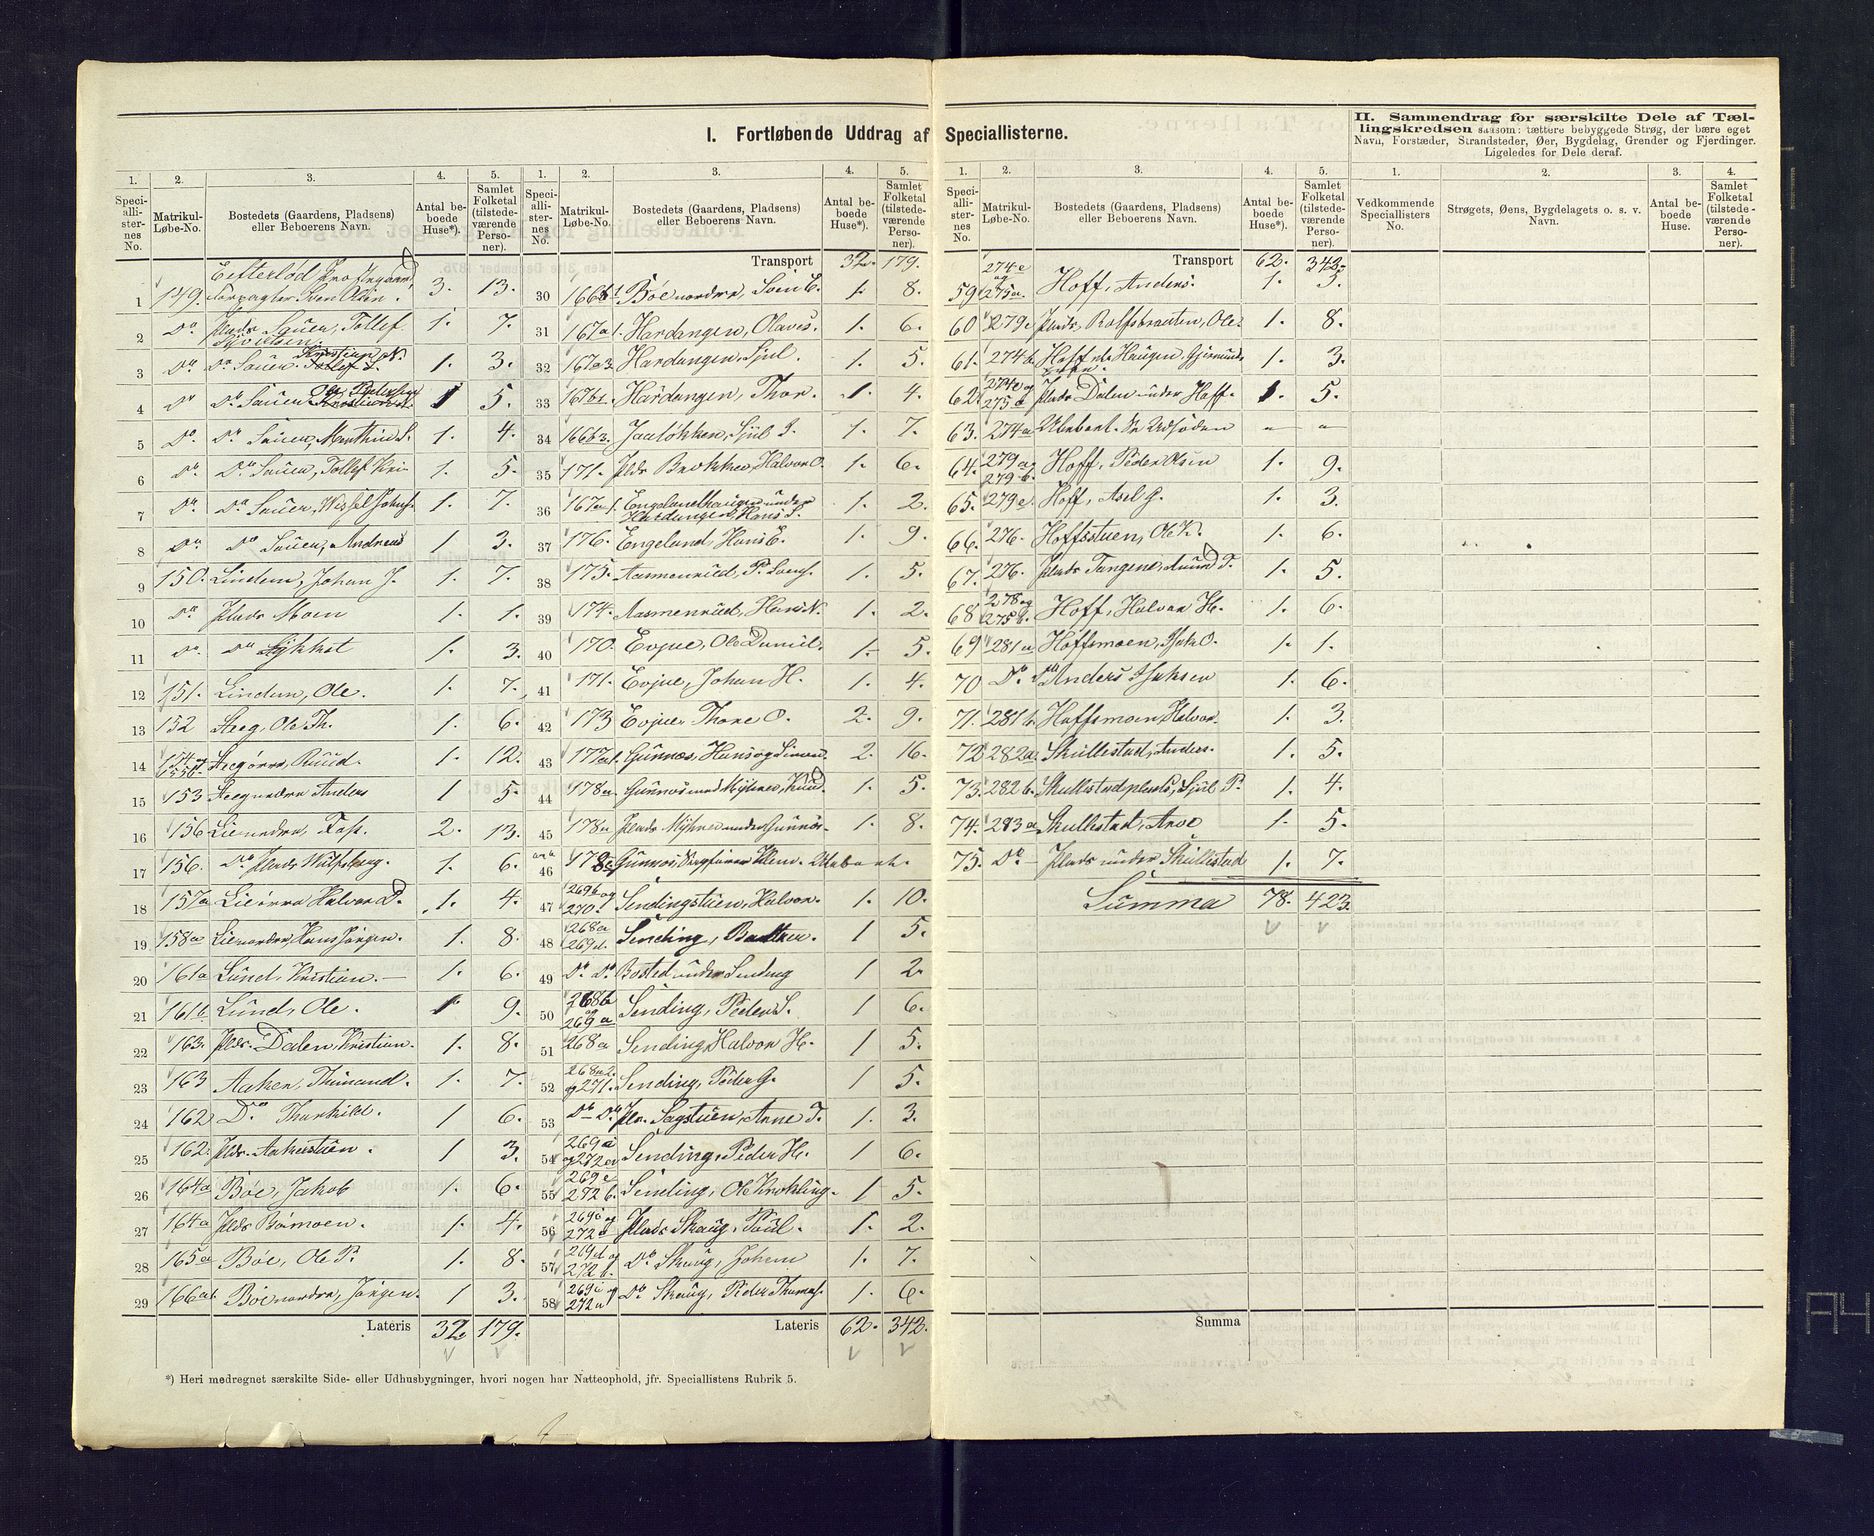 I. Fortløbende Uddrag af Speciallisterne.
II. Sammendrag for særskilte Dele af Tæl-
lingskredsen saasom: tættere bebyggede Strøg, der bære eget
Navn, Forstæder, Strandsteder, Øer, Bygdelag, Grender og Fjerdinger.
Ligeledes for Dele deraf.
1. 2. 3. 4. 5.
Speciallisternes No. Matrikul-Løbe-No. Bostedets (Gaardens, Pladsens) eller Beboerens Navn. Antal beboede Huse*). Samlet Folketal (tilstedeværende Personer).
1 149. Eefterlød Sven Olsen. 3. 13.
2 Do. Plads Sauen, Tollef 1. 7.
3 Do. Do. Sauen, Kristian N. 1. 3.
4 Do. Do. Sauen, Ole Pedersen 1 5.
5 Do. Do. Sauen, Marthin S. 1. 4.
6 Do. Do. Sauen, Tollef Kri 1. 5.
7 Do. Do. Sauen, 1. 7.
8 Do. Do. Sauen, Andreas 1 3.
9 150. Lindem, Johan J. 1. 7.
10 Do. Plads Moen 1. 1.
11 Do. Do. Lykket 1. 3.
12 151. Lindem, Ole. 1. 7.
13 152 Aeeg, Ole Th. 1. 6.
14 154 og 155b. Ruud. 1. 12.
15 153 Anders 1 5.
16 156 Lie nedre, 2. 13.
17 156. Do. Plads Wulfsberg. 1. 6.
18 157a Lie øvre Halvor D. 1. 4.
19 158a Lie nordre, Hans Jørgen. 1. 8.
20 161a Lund, Kristian. 1. 6.
21 161b Lund, Ole. 1 9.
22 163. Plds. Dalen, Kristian. 1. 8.
23 163 Aaken, Thimand. 1. 7.
24 162 Do. Thorkild. 1 6.
25 162. Plds. Aakerstuen. 1 3.
26 164a Bøe, Jakob 1. 6.
27 164a Plds Bømoen. 1. 4.
28 165a Bøe, Ole P. 1. 8.
29 166a1. Bøe nordre, Jørgen. 1 3.
Lateris 32. 179.
Transport 32. 179.
30 166b1 Bøe nordre, Sven E. 1. 8.
31 167a1. Hardangen, Olaves. 1. 6.
32 167a3. Hardangen, Sjul. 1. 5.
33 167b1. Hardangen, Thor. 1. 4.
34 166b3. Jaaløkken, Sjul S. 1. 7.
35 171. Plds Brekke, Halvor O. 1. 6.
36 167a1. Engelandhaugen under Hardangen, Hans S. 1. 2.
37 176. Engeland, Hans E. 1. 9.
38 175. Aasmenrud, P. Lars. 1. 5.
39 174. Aasmenrud, Hans N. 1. 2.
40 170. Evjue, Ole Daniel. 1. 5.
41 171. Evjue, Johan H. 1. 4.
42 173 Evjue, Thore O. 2. 9.
43 177a1. Gunnæs, Hans og Simen 2. 16.
44 178a. Gunnæs med Myhre, Knud 1. 5.
45 178a Plads Myhre under Gunnæs. 1. 8.
46 Gunnæs, Ubeboet.
47 269b og 270. Sendingstuen, Halvor. 1. 10.
48 268a 269d. Sending, 1 5.
49 Do. Do. Bosted under Sending 1 2.
50 268b og 269a Sending, Peder S. 1 6.
51 268a Sending, Halvor H. 1 5.
52 268a2. og 271. Sending, Peder G. 1 5.
53 Do. Do. Pls. Sagstuen, Anne T. 1. 3.
54 269a og 272a Sending, Peder H. 1 6.
55 269e 272b. Sending, Ole Krokling. 1 5.
56 269i og 272a Plads Skaug, Paul. 1. 2.
57 269d og 272b. Do. Skaug, Johan 1. 7.
58 269i og 272a Do. Skaug, Peder Thomas. 1. 6.
Lateris 62. 342.
*) Heri medregnet særskilte Side- eller Udhusbygninger, hvori nogen har Natteophold, jfr. Speciallistens Rubrik 5.
Transport 62. 342.
59 274c og 275a. Hoff, Anders. 1. 3.
60 279c Plads Rolfsbraaten, Ole. 1. 8.
61. 274b. Hoff Haugen, 1. 3.
62. 274c og 275a Plads Dalen under Hoff. 1. 5.
63. 274a Ubeboet. – –
64. 279a og 279b. Hoff, Peder Olsen 1. 9.
65. 279e. Hoff, Axel G. 1. 3.
66. 276. Hoffsstuen, Ole K. 1. 6.
67. 276. Plads Tangen, Amund T. 1. 5.
68 278 og 275b. Hoff, Halvor H. 1. 6.
69 281a Hoffsmoen, Isak O. 1. 1.
70 Do. Do. Anders Isaksen 1. 6.
71. 281b. Hoffsmoen, Halvor. 1. 3.
72 282a. Skullestad, Anders. 1. 5.
73. 282b. Skullestadplads, Sjul P. 1. 4.
74. 283a Skullestad, Arve 1. 5.
75. Do. Plads under Skullestad 1. 7.
Summa 78. 423.
Summa
1. 2. 3. 4.
Vedkommende Speciallisters No. Strøgets, Øens, Bygdelagets o. s. v. Navn. Antal beboede Huse. Samlet Folketal (tilstedeværende Personer).